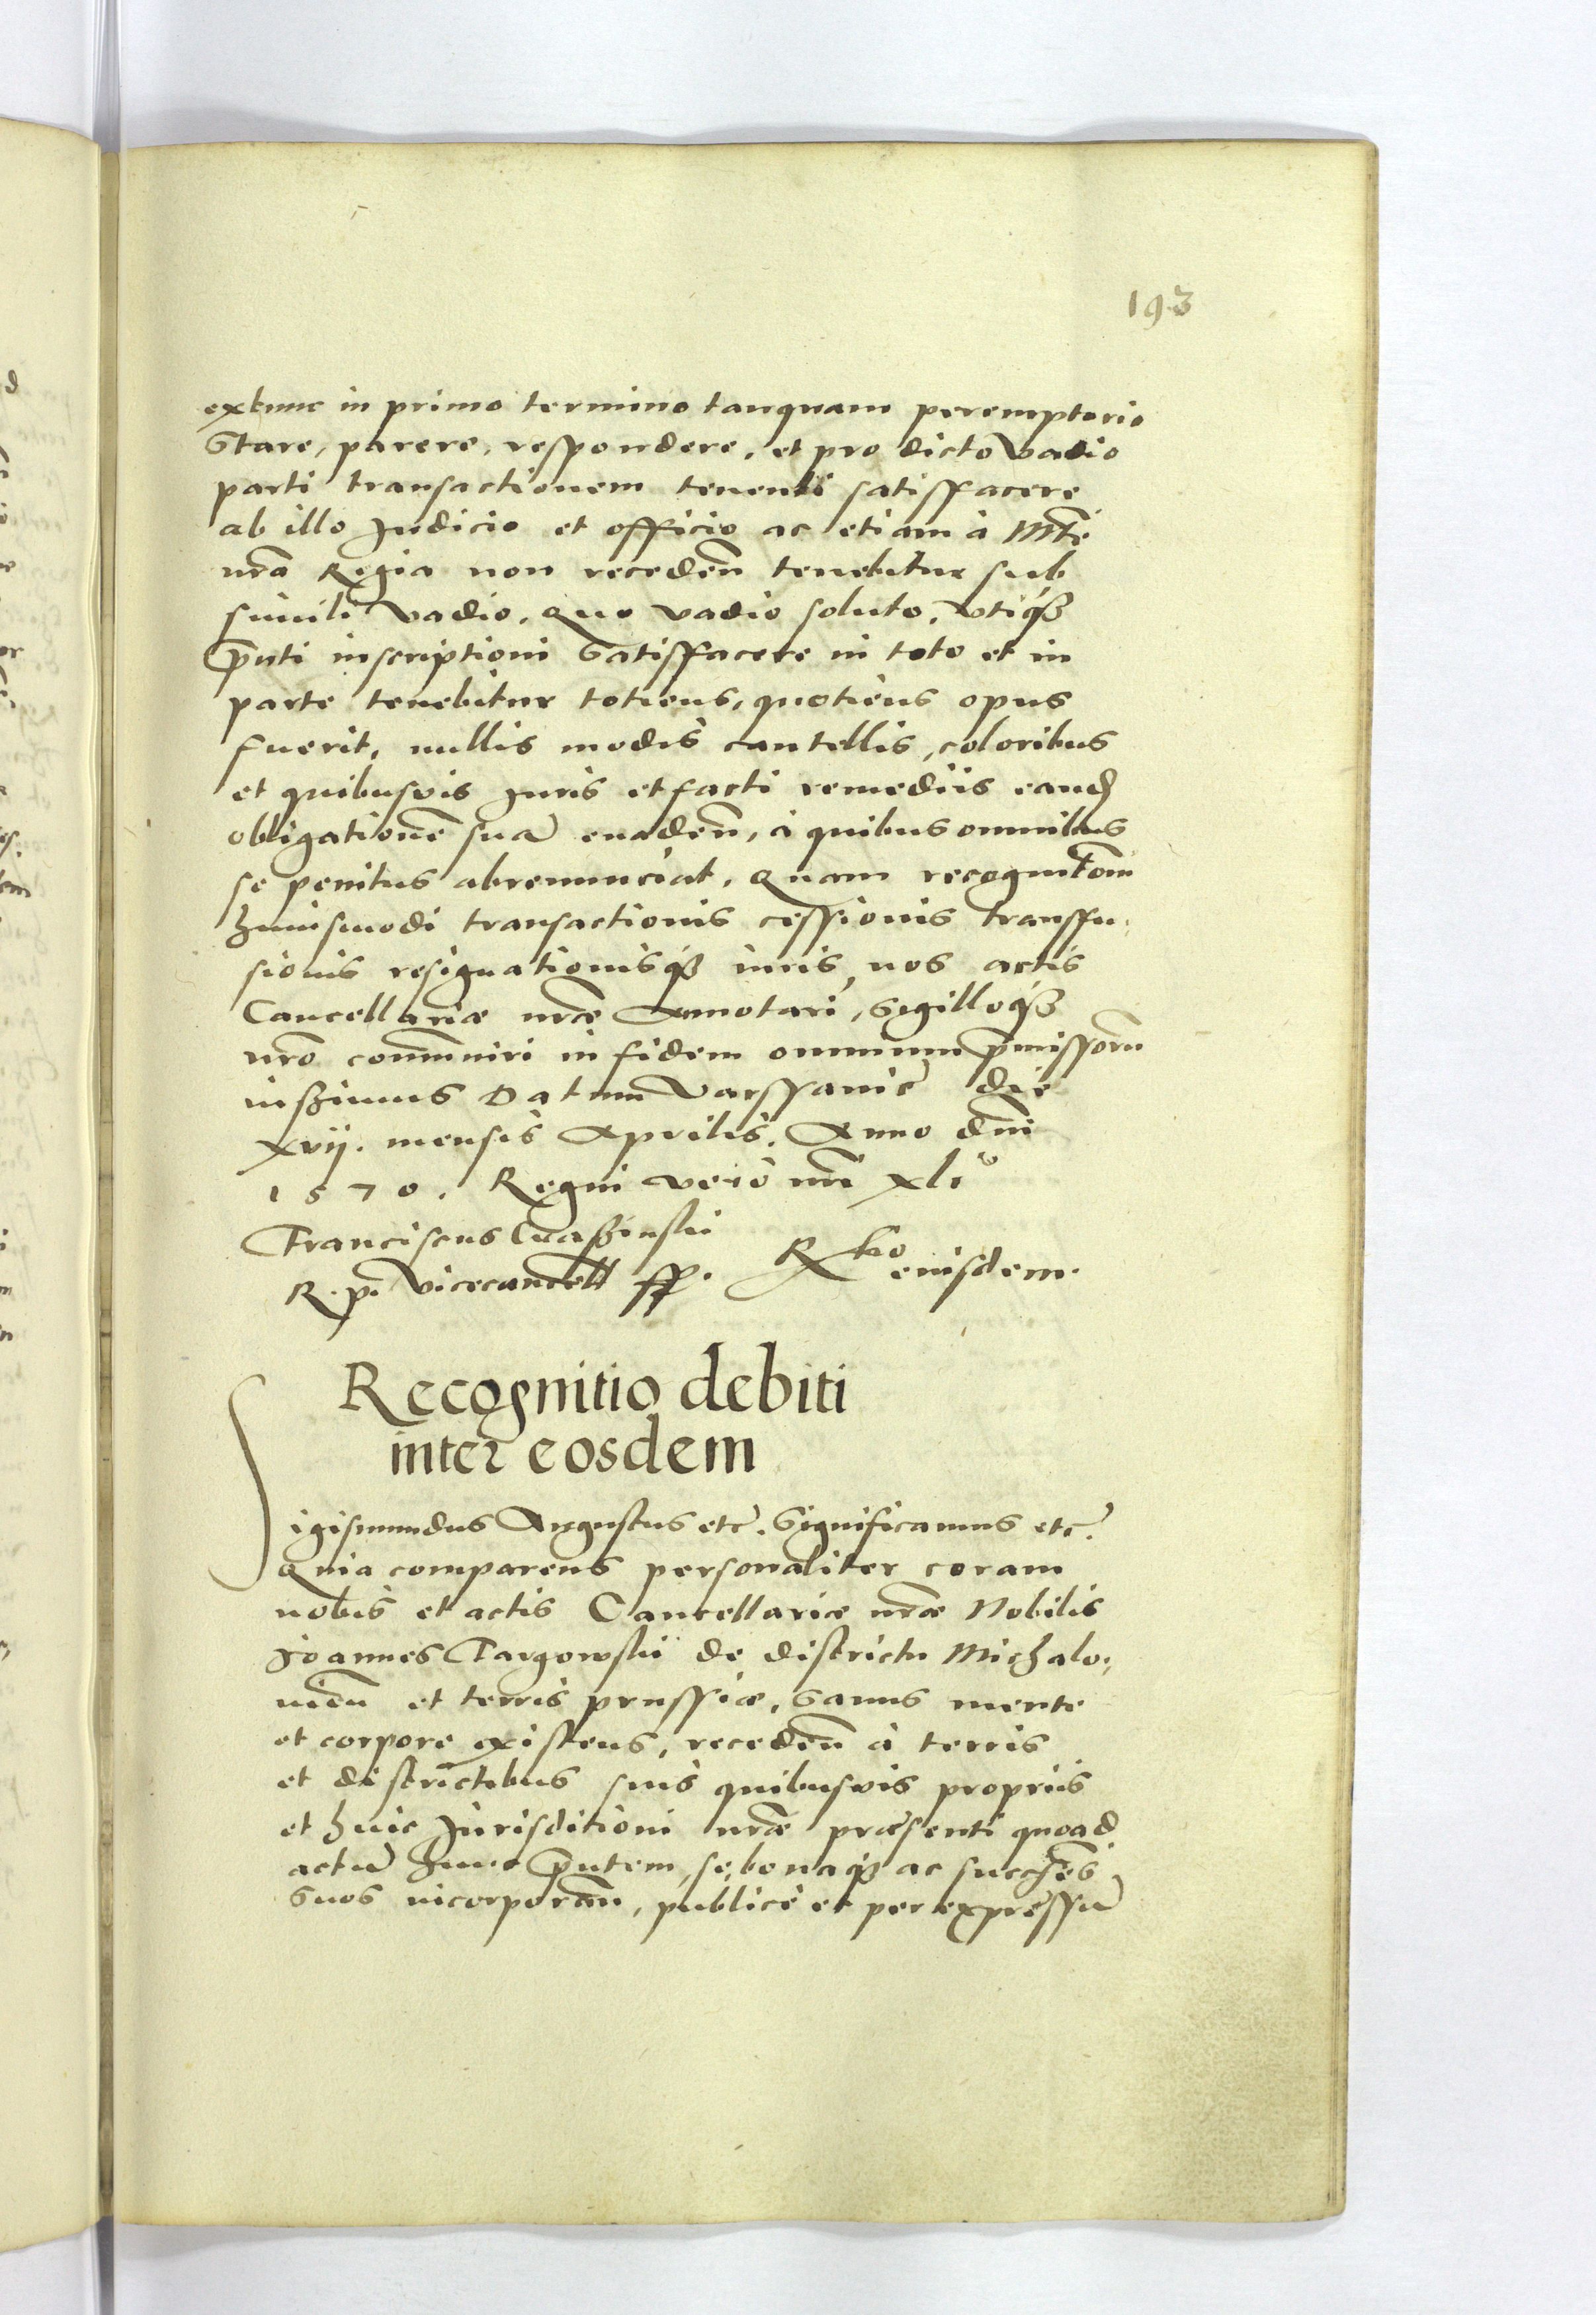 193
extunc in primo termino tanquam peremptorio
Stare, parere, respondere, et pro dicto vadio
parti transactionem tenenti satisffacere
ab illo Judicio et officio ac etiam à Mte
nra Regia non receden̄ tenebitur sub
simili vadio, Quo vadio soluto, vtiqȝ
p̄nti inscriptioni Satisffacere in toto et in
parte tenebitur totiens, quotiens opus
fuerit, nullis modis cautellis, coloribus
et quibusvis Juris et facti remediis eand
obligationē suā euaden̄, à quibus omnibus
se penitus abrenunciat, Quam recognitōm
huiusmodi transactionis cessionis transffu,
sionis resignationisqȝ iuris, nos actis
Cancellariæ nræ Annotari, Sigilloqȝ
nrō communiri in fidem omnium p̄missorū
iussimus Datum Varssauiē die
xvij. mensis Aprilis. Anno dni
1570. Regni verò nri xlio
Franciscus Crassinski
R. p. Vicecancell ff. Rtio eiusdem.
Recognitio debiti
inter eosdem
Sigismundus Augustus etc. Significamus etc.
Quia comparens personaliter coram
nobis et actis Cancellariæ nræ Nobilis
Joannes Targowskii de districtu Michalo,
uien̄ et terris prussiæ, Sanus mente
et corpore existens, receden̄ à terris
et districtibus suis quibusvis propriis
et huic Jurisditioni nræ præsenti quoad
actū hunc p̄ntem, se, bonaqȝ ac succ̄res
Suos incorporan̄, publicè et per expressū